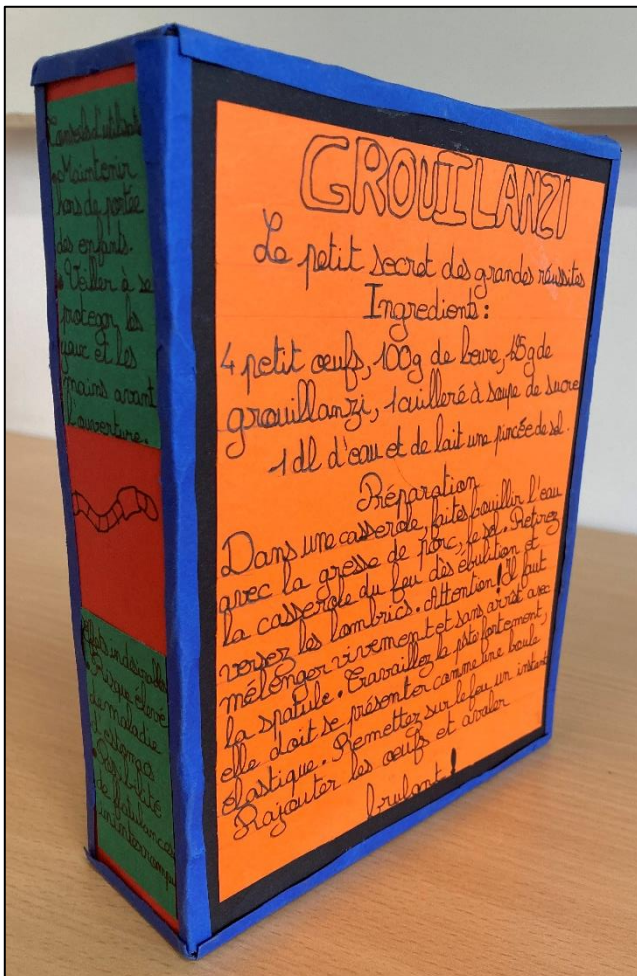 Conseils d'utilisati
• Maintenir
hors de portée
des enfants.
• Veiller à se
proteger les
yeux et les
mains avant
l'ouverture.
effets indésirables
• Risque élevé
de maladie
d'estomac
• Possibilité
de flatulances
ininterrompu
GROUILANZI
Le petit secret des grandes réussites
Ingredients :
4 petit oeufs, 100g de beure, 125g de
grouillanzi, 1 cuilleré à soupe de sucre
1 dl d'eau et de lait une pincée de sel.
Préparation
Dans une casserole, faites bouillir l'eau
avec la gresse de porc, le sel. Retirez
la casserole du feu dès ébulition et
versez les lombrics. Attention ! Il faut
mélonger vivement et sans arrêt avec
la spatule. Travaillez la pâte fortement,
elle doit se présenter comme une boule
élastique. Remettez sur le feu un instant
Rajouter les oeufs et avaler
brulant !